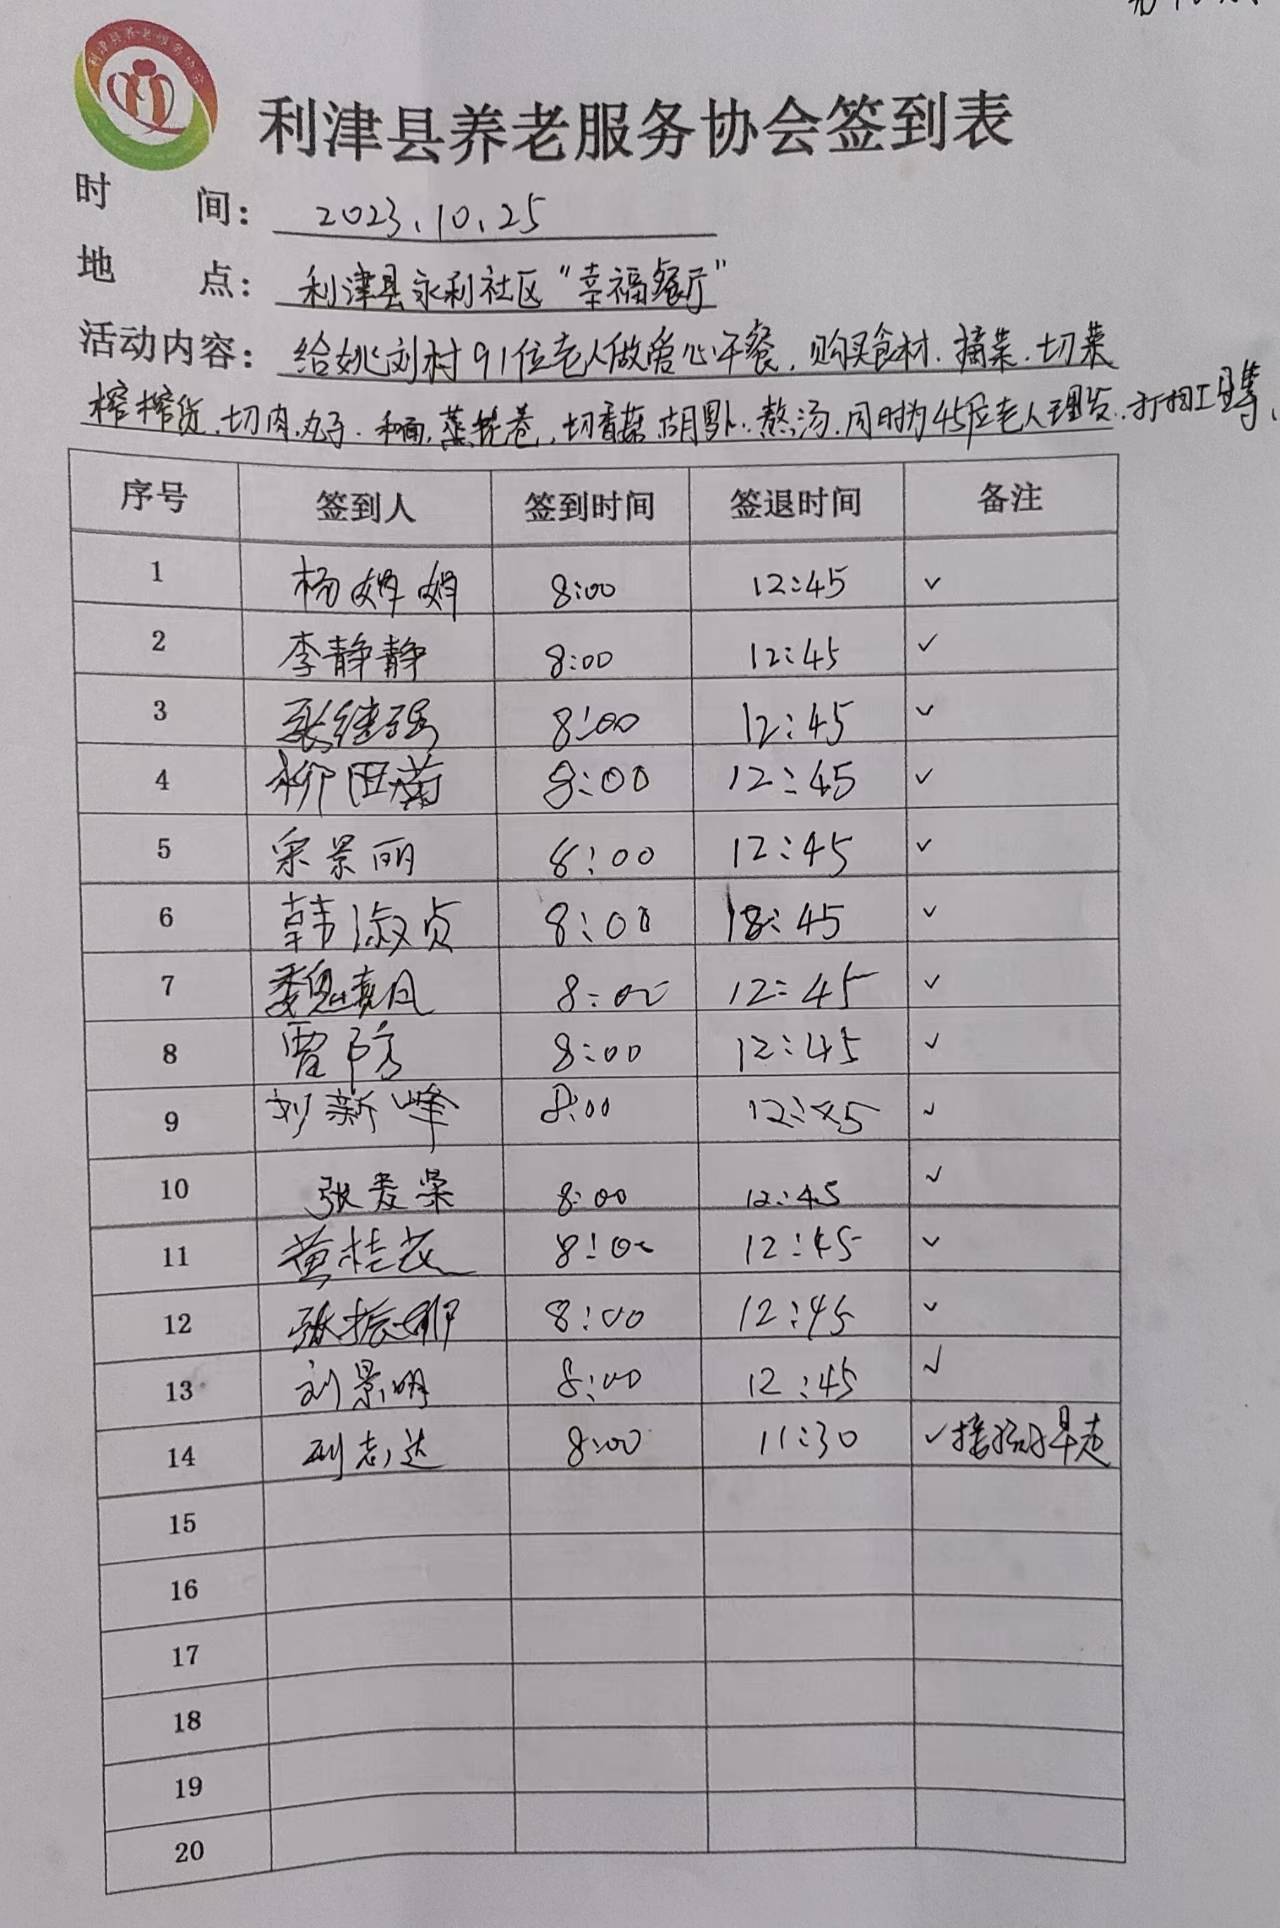 利津县养老服务协会
利津县养老服务协会签到表
时 间: 2023.10.25
地 点: 利津县永利社区“幸福餐厅”
活动内容: 给姚刘村91位老人做爱心午餐,购买食材.摘菜.切菜
切肉.丸子.和面.蒸花卷,切香菇胡萝卜.熬汤.同时为45位老人理发.打扫卫生等、
序号 签到人 签到时间 签退时间 备注
1 杨婷婷 8:00 12:45 ✓
2 李静静 8:00 12:45 ✓
3 张继强 8:00 12:45 ✓
4 柳田菊 8:00 12:45 ✓
5 宋景丽 8:00 12:45 ✓
6 韩淑贞 8:00 18:45 ✓
7 魏 8:00 12:45 ✓
8 贾防 8:00 12:45 ✓
9 刘新峰 8:00 12:45 ✓
10 张爱荣 8:00 12:45 ✓
11 黄桂花 8:00 12:45 ✓
12 张振娜 8:00 12:45 ✓
13 刘景明 8:00 12:45 ✓
14 刘志达 8:00 11:30 ✓接孩子早走
15
16
17
18
19
20